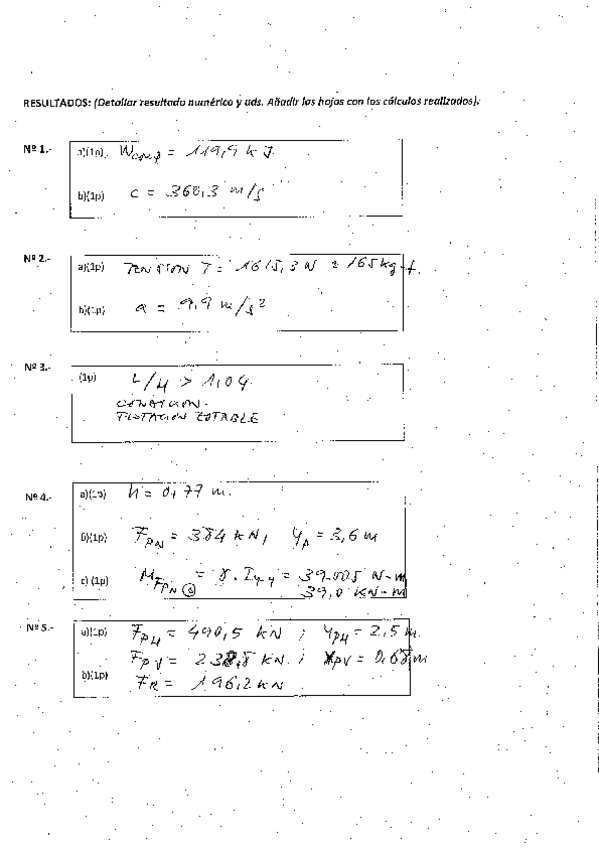 RESULTADOS: (Detallar resultado numérico y uds. Añadir las hojas con los cálculos realizados).
Nº 1.-
a)(1p) Wcomp = 119,9 kJ.
b)(1p) c = 368,3 m/s
Nº 2.-
a)(1p) TENSION T = 1615,3 N = 165 kg-f.
b)(1p) a = 9,9 m/s²
Nº 3.-
(1p) L/H > 1,04.
CONDICION.
FLOTACION ESTABLE
Nº 4.-
a)(1p) h = 0,77 m.
b)(1p) FPN = 384 kN, yp = 3,6 m
c) (1p) MFPN = γ.Iyy = 39.005 N-m
39,0 KN-m
Nº 5.-
a)(1p) FPH = 490,5 kN ; YPH = 2,5 m.
FPV = 238,8 kN. ; XPV = 0,68 m
b)(1p) FR = 196,2 kN